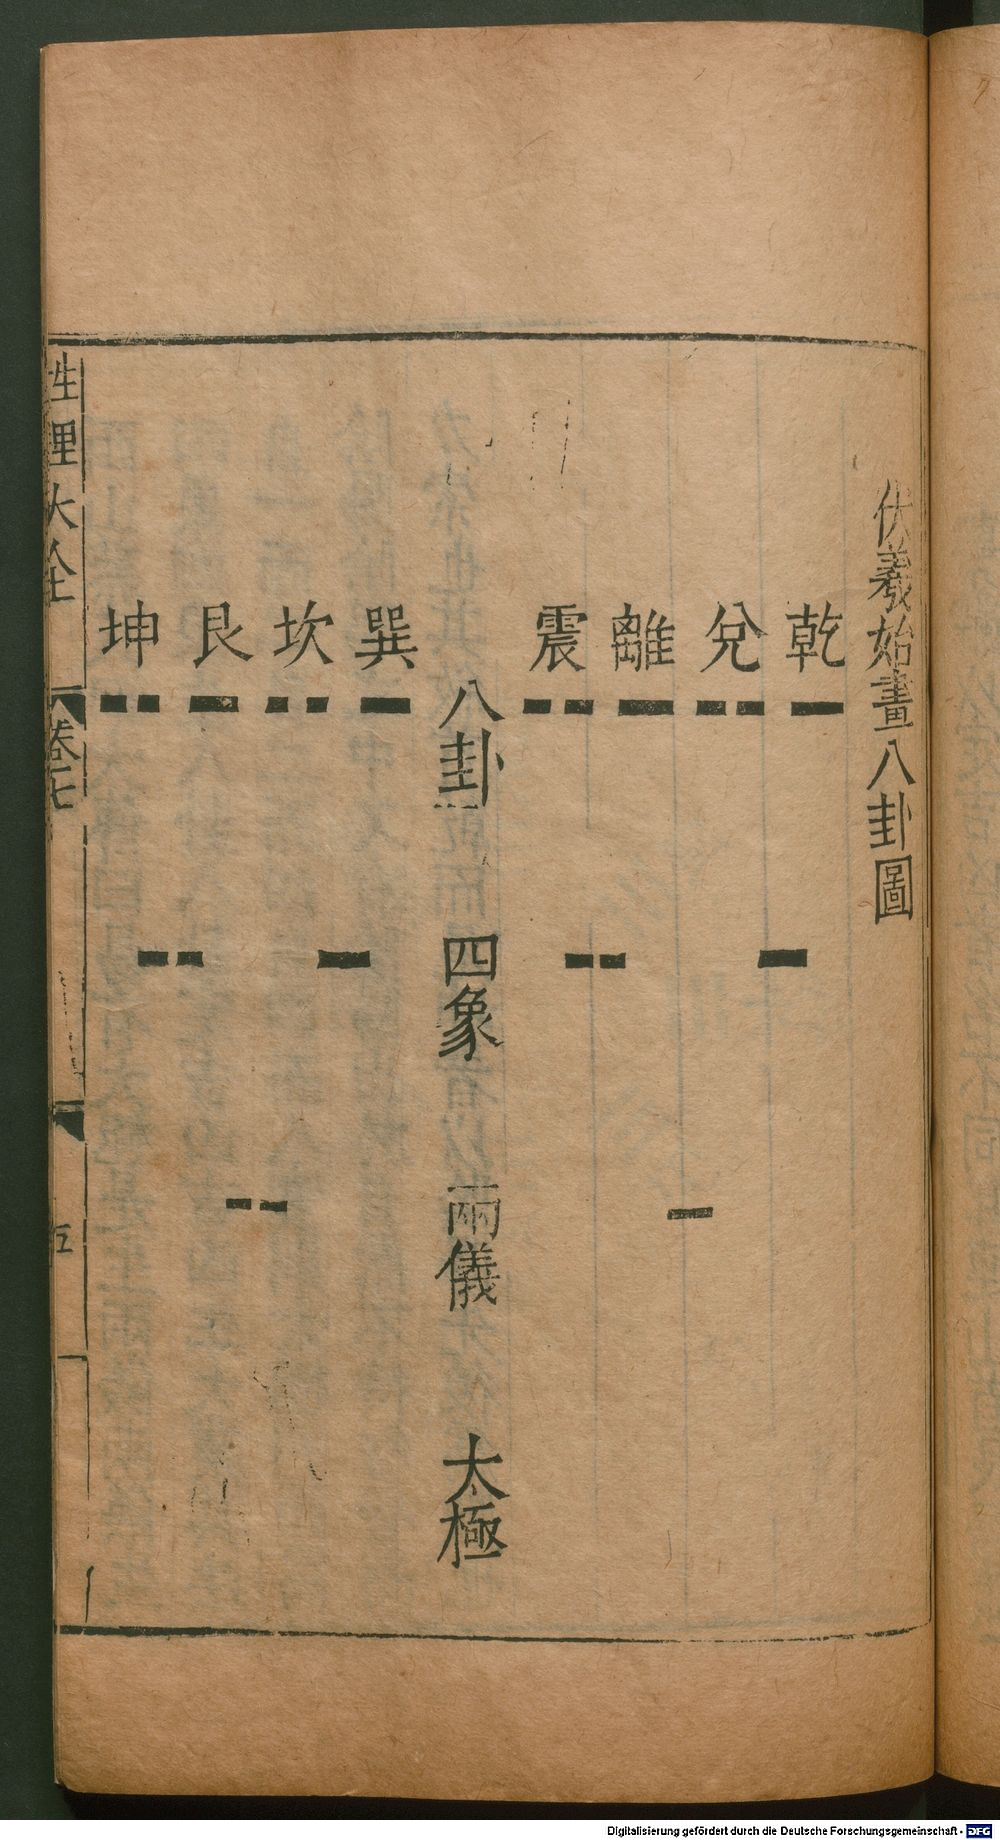 伏羲始畫八卦圖
乾
兌
離
震
八卦
四象
兩儀
太極
巽
坎
艮
坤
性理大全
卷七
五
Digitalisierung gefördert durch die Deutsche Forschungsgemeinschaft - DFG